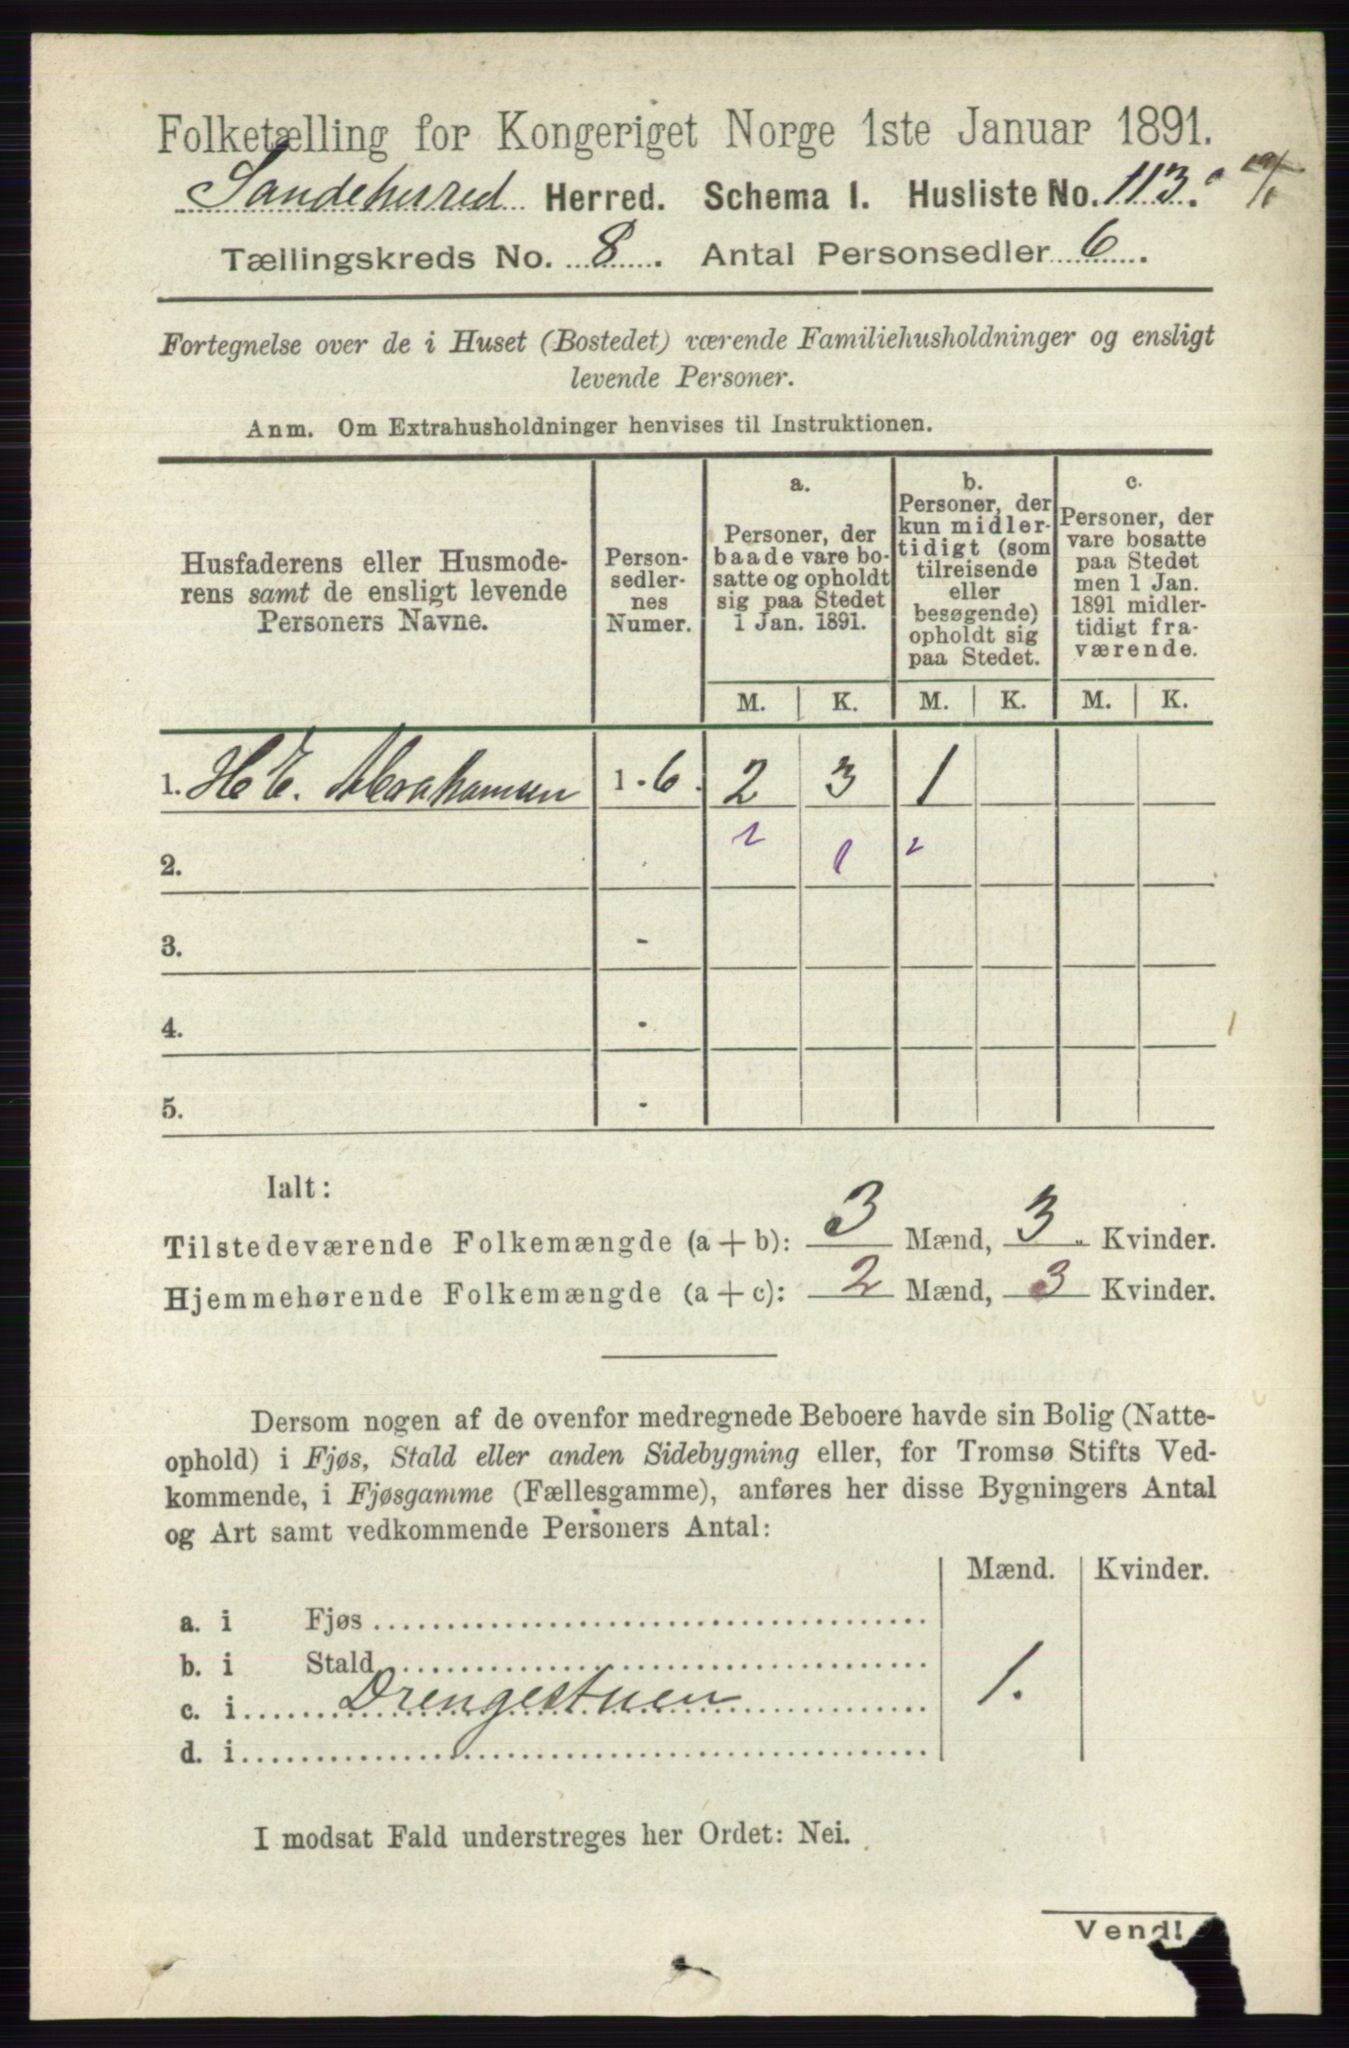 Folketælling for Kongeriget Norge 1ste Januar 1891.
Sandeherred Herred. Schema I. Husliste No. 113.
Tællingskreds No. 8. Antal Personsedler 6.
Fortegnelse over de i Huset (Bostedet) værende Familiehusholdninger og ensligt
levende Personer.
Anm. Om Extrahusholdninger henvises til Instruktionen.
Husfaderens eller Husmode-
rens samt de ensligt levende
Personers Navne.
Person-
sedler-
nes
Numer.
a.
Personer, der
baade vare bo-
satte og opholdt
sig paa Stedet
1 Jan. 1891.
b.
Personer, der
kun midler-
tidigt (som
tilreisende
eller
besøgende)
opholdt sig
paa Stedet.
c.
Personer, der
vare bosatte
paa Stedet
men 1 Jan.
1891 midler-
tidigt fra-
værende.
M. K. M. K. M. K.
1. H. E. Abrahamsen 1 - 6. 2 3 1
2.
3. -
4. -
5. -
Ialt:
Tilstedeværende Folkemængde (a + b): 3 Mænd, 3 Kvinder.
Hjemmehørende Folkemængde (a + c): 2 Mænd, 3 Kvinder.
Dersom nogen af de ovenfor medregnede Beboere havde sin Bolig (Natte-
ophold) i Fjøs, Stald eller anden Sidebygning eller, for Tromsø Stifts Ved-
kommende, i Fjøsgamme (Fællesgamme), anføres her disse Bygningers Antal
og Art samt vedkommende Personers Antal:
Mænd. Kvinder.
a. i Fjøs
b. i Stald
c. i Drengestuen 1.
d. i
I modsat Fald understreges her Ordet: Nei.
Vend!